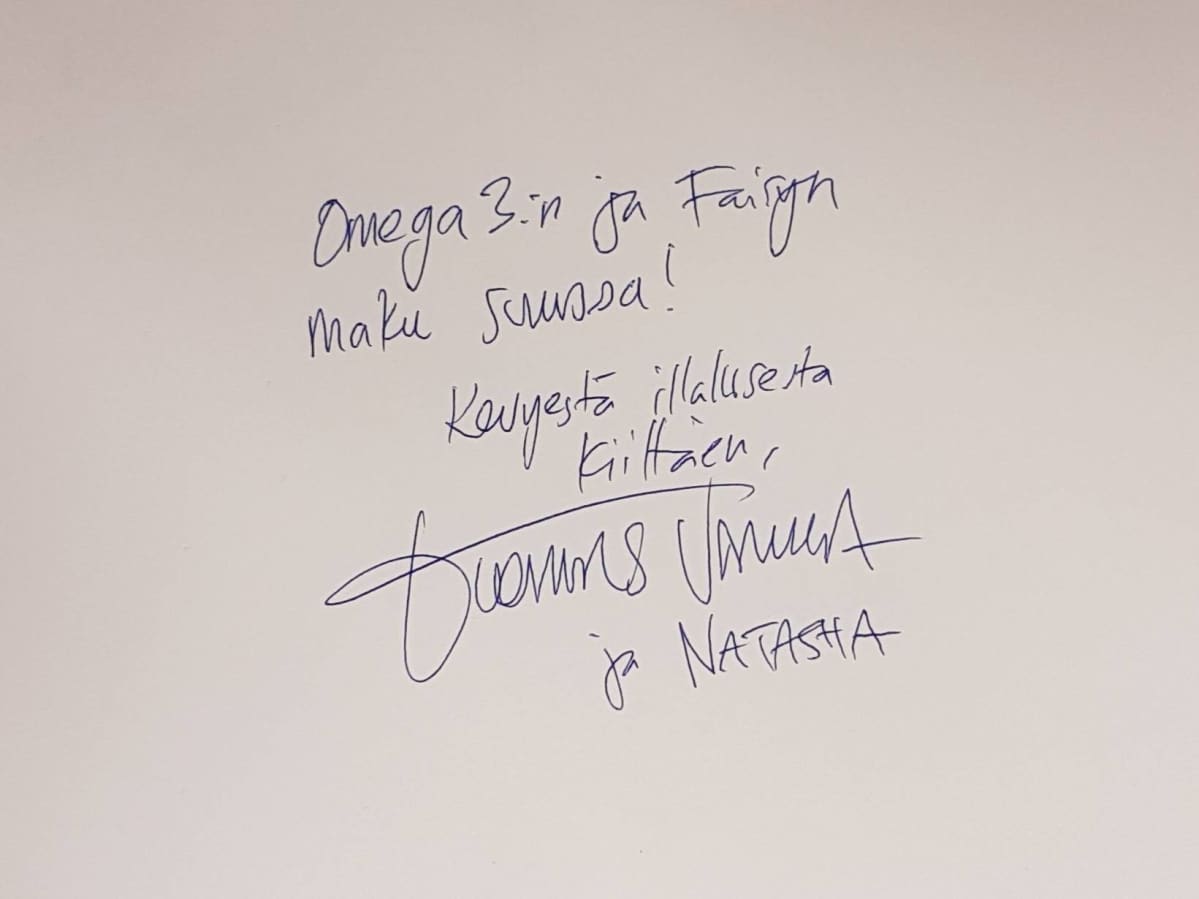 Omega 3:n ja Fairyn
maku suussa!
Kevyestä illallisesta
kiittäen,
Tuomas
ja NATASHA